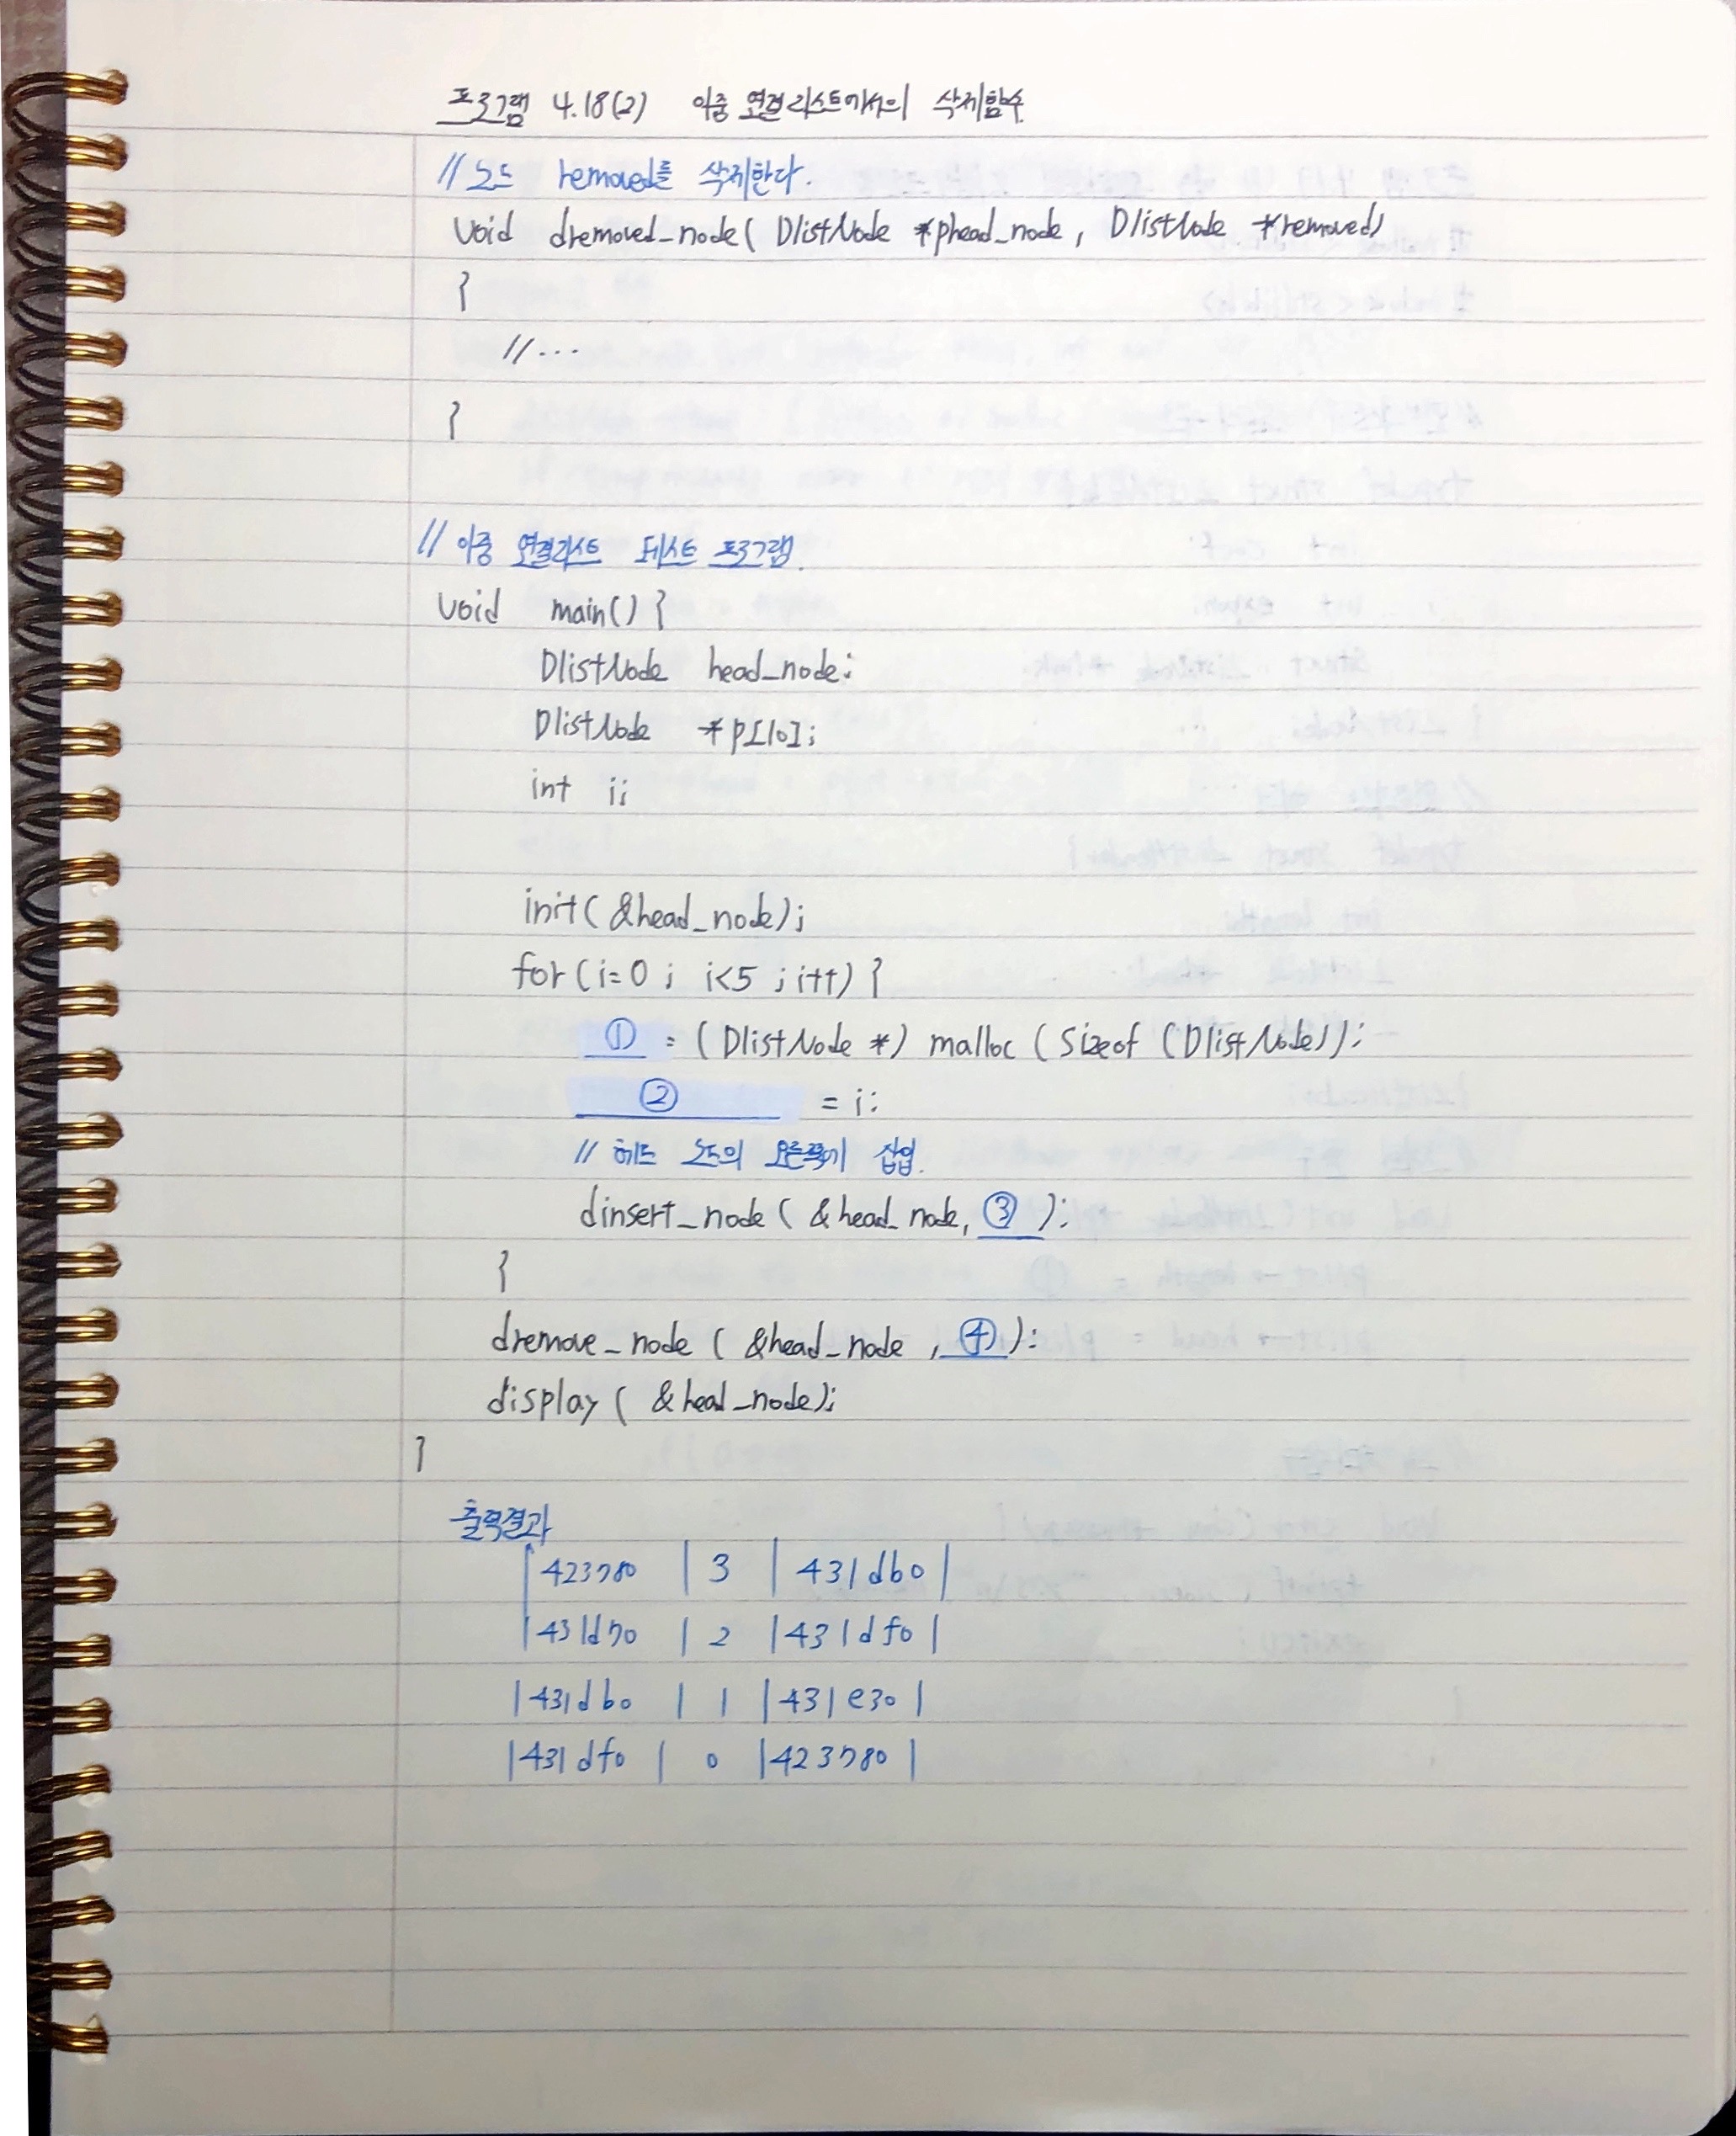 프로그램 4.18(2) 이중 연결리스트에서의 삭제함수
// 노드 removed를 삭제한다.
void dremoved_node( DlistNode *phead_node, DlistNode *removed)
}
//...
}
// 이중 연결리스트 테스트 프로그램.
void main() {
DlistNode head_node;
DlistNode *p[10];
int i;
init( &head_node);
for (i=0 ; i<5 ; i++) {
① = (DlistNode *) malloc (sizeof (DlistNode));
② = i;
// 헤드 노드의 오른쪽에 삽입.
dinsert_node ( &head_node, ③ );
}
dremove_node ( &head_node , ④ );
display ( &head_node);
}
출력결과
|423780 | 3 | 431db0 |
|431d70 | 2 | 431df0 |
|431db0 | 1 | 431e30 |
|431df0 | 0 | 423780 |